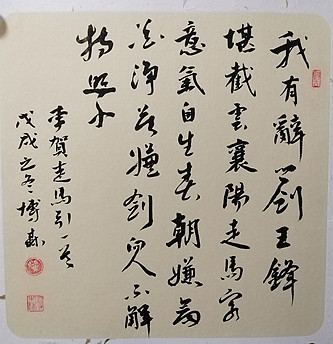 我有辭鄉劍玉鋒
堪截雲襄陽走馬客
意氣自生春朝嫌劍
花淨暮嫌劍不解
持照身
李賀走馬引一首
戊戌之冬博